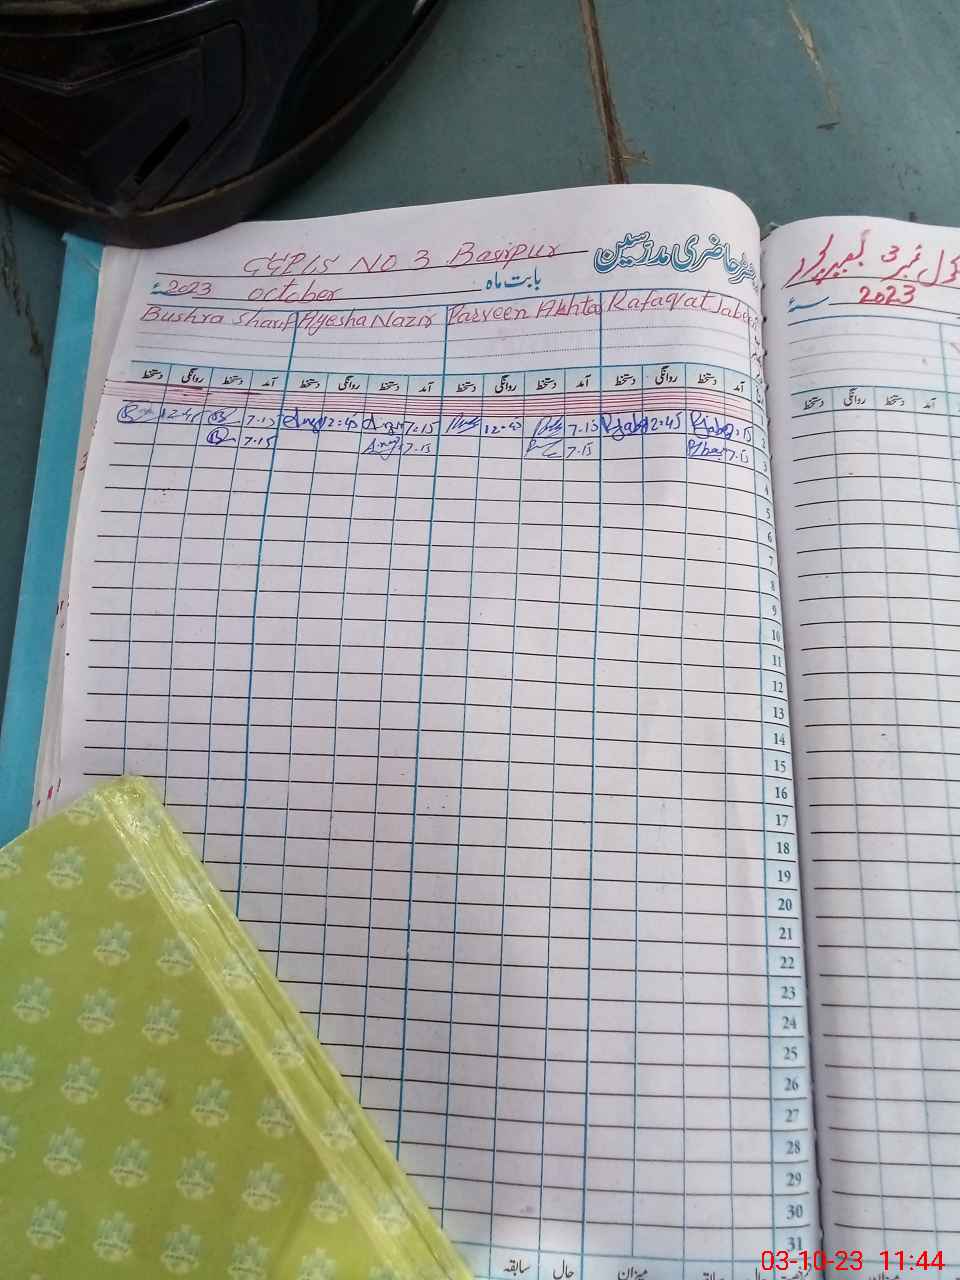 رجسٹر حاضری مدرسین
GGPLS NO 3 Basirpur
بابت ماہ October 2023ء
Rafaqat Jabeen Parveen Akhtar Ayesha Nazir Bushra Sharif
آمد دستخط روانگی دستخط آمد دستخط روانگی دستخط آمد دستخط روانگی دستخط آمد دستخط روانگی دستخط
2 7.15 12:45 7.15 12:45 7.15 12:45 7.15 12:45
3 7.15 7.15 7.15 7.15
4
5
6
7
8
9
10
11
12
13
14
15
16
17
18
19
20
21
22
23
24
25
26
27
28
29
30
31
میزان حال سابقہ
نمبر 3 بصیرپور
2023ء
آمد دستخط روانگی دستخط
03-10-23 11:44